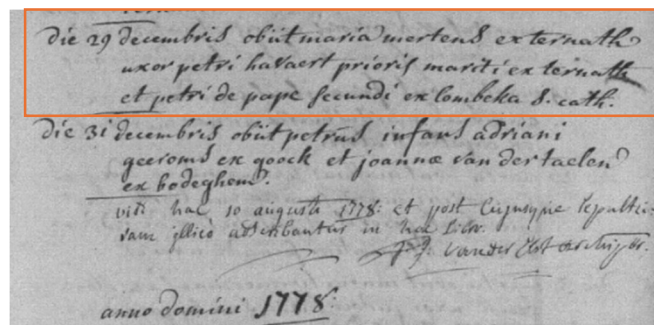 die 29 decembris obiit maria mertens ex ternath
uxor petri havaert prioris mariti ex ternath
et petri de pape secundi ex lombeka S. cath.
die 31 decembris obiit petrus infans adriani
geeroms ex goock et joannæ van der taelen
ex bodeghem.
visi hac 10 augusti 1778: et post
in hoc libro.
anno domini 1778